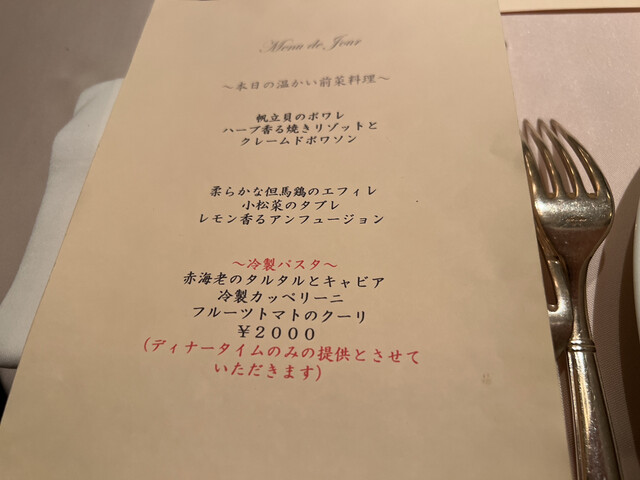 Menu de Jour
～本日の温かい前菜料理～
帆立貝のポワレ
ハーブ香る焼きリゾットと
クレームドポワソン
柔らかな但馬鶏のエフィレ
小松菜のタブレ
レモン香るアンフュージョン
～冷製パスタ～
赤海老のタルタルとキャビア
冷製カッペリーニ
フルーツトマトのクーリ
￥２０００
(ディナータイムのみの提供とさせて
いただきます)